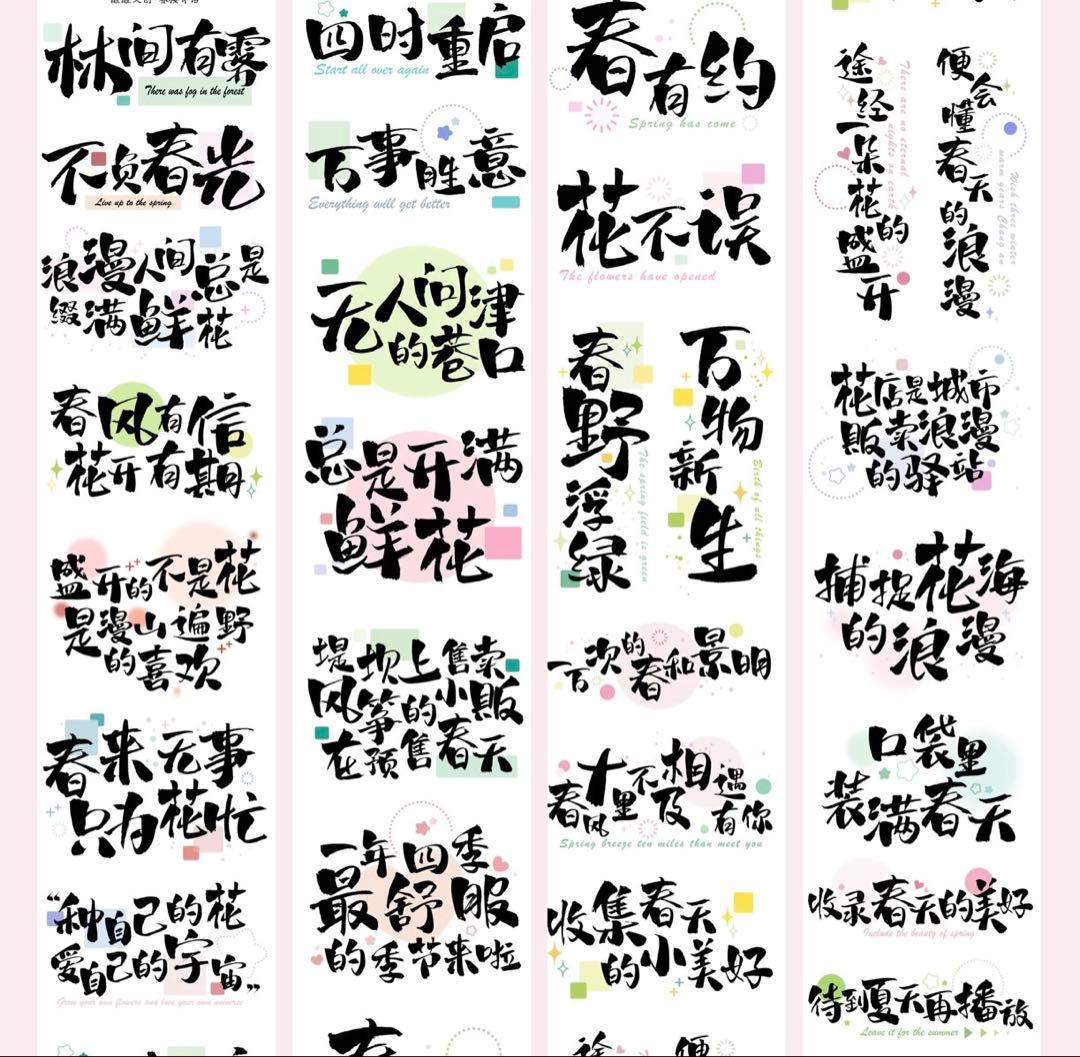 林间有雾
There was fog in the forest
不负春光
Live up to the spring
浪漫人间总是
缀满鲜花
春风有信
花开有期
盛开的不是花
是漫山遍野
的喜欢
春来无事
只为花忙
“种自己的花
爱自己的宇宙„
Grow your own flowers and love your own universe
四时重启
Start all over again
万事胜意
Everything will get better
无人问津
的巷口
总是开满
鲜花
堤坝上售卖
风筝的小贩
在预售春天
一年四季
最舒服
的季节来啦
春
春有约
Spring has come
花不误
The flowers have opened
春野浮绿
The spring field is green
万物新生
Birth of all things
一万次的春和景明
春风十里不及相遇有你
Spring breeze ten miles than meet you
收集春天
的小美好
途
便
途经一朵花的盛开
There are no eternal nights on earth
便会懂春天的浪漫
花店是城市
贩卖浪漫
的驿站
捕捉花海
的浪漫
口袋里
装满春天
收录春天的美好
Include the beauty of spring
待到夏天再播放
Leave it for the summer